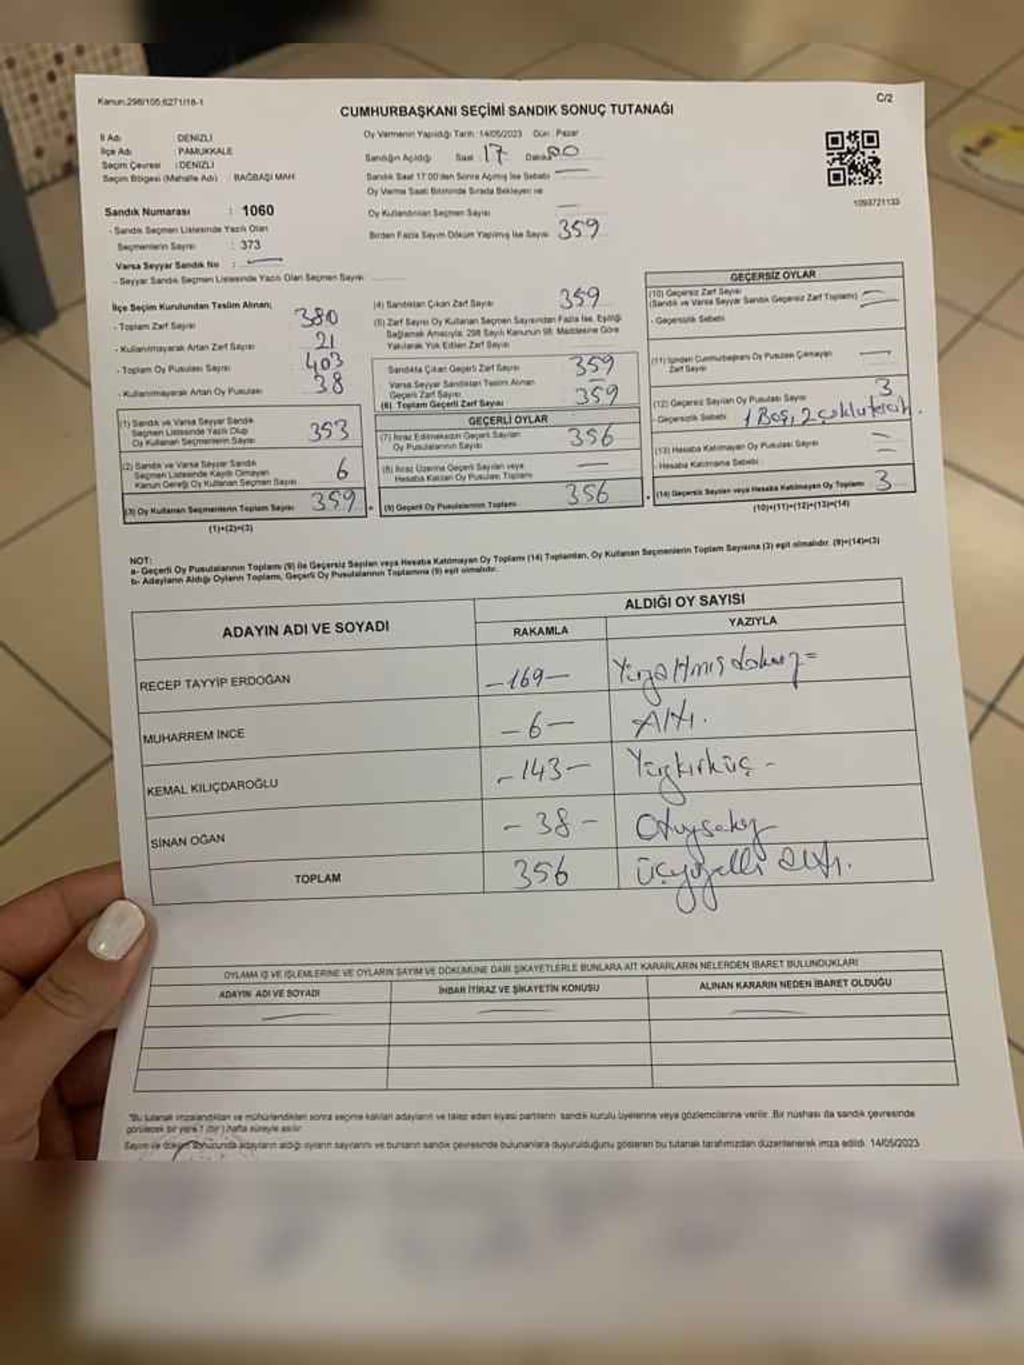 Kanun:298/105;6271/18-1
C/2
CUMHURBAŞKANI SEÇİMİ SANDIK SONUÇ TUTANAĞI
İl Adı : DENİZLİ
İlçe Adı : PAMUKKALE
Seçim Çevresi : DENİZLİ
Seçim Bölgesi (Mahalle Adı) : BAĞBAŞI MAH
Oy Vermenin Yapıldığı Tarih :14/05/2023 Gün : Pazar
Sandığın Açıldığı Saat : 17 Dakika 00
Sandık Saat 17:00'den Sonra Açılmış İse Sebebi —
Oy Verme Saati Bitiminde Sırada Bekleyen ve
Oy Kullandırılan Seçmen Sayısı —
Birden Fazla Sayım Döküm Yapılmış İse Sayısı 359
1093721133
Sandık Numarası : 1060
- Sandık Seçmen Listesinde Yazılı Olan
Seçmenlerin Sayısı : 373
Varsa Seyyar Sandık No : —
- Seyyar Sandık Seçmen Listesinde Yazılı Olan Seçmen Sayısı
İlçe Seçim Kurulundan Teslim Alınan;
- Toplam Zarf Sayısı 380
- Kullanılmayarak Artan Zarf Sayısı 21
- Toplam Oy Pusulası Sayısı 403
- Kullanılmayarak Artan Oy Pusulası 38
(1) Sandık ve Varsa Seyyar Sandık
Seçmen Listesinde Yazılı Olup
Oy Kullanan Seçmenlerin Sayısı 353
(2) Sandık ve Varsa Seyyar Sandık
Seçmen Listesinde Kayıtlı Olmayan
Kanun Gereği Oy Kullanan Seçmen Sayısı 6
(3) Oy Kullanan Seçmenlerin Toplam Sayısı 359
(1)+(2)=(3)
(4) Sandıktan Çıkan Zarf Sayısı 359
(5) Zarf Sayısı Oy Kullanan Seçmen Sayısından Fazla İse, Eşitliği
Sağlamak Amacıyla, 298 Sayılı Kanunun 98. Maddesine Göre
Yakılarak Yok Edilen Zarf Sayısı
Sandıkta Çıkan Geçerli Zarf Sayısı 359
Varsa Seyyar Sandıktan Teslim Alınan
Geçerli Zarf Sayısı —
(6) Toplam Geçerli Zarf Sayısı 359
GEÇERLİ OYLAR
(7) İtiraz Edilmeksizin Geçerli Sayılan
Oy Pusulalarının Sayısı 356
(8) İtiraz Üzerine Geçerli Sayılan veya
Hesaba Katılan Oy Pusulası Toplamı —
(9) Geçerli Oy Pusulalarının Toplamı 356
GEÇERSİZ OYLAR
(10) Geçersiz Zarf Sayısı
(Sandık ve Varsa Seyyar Sandık Geçersiz Zarf Toplamı) —
- Geçersizlik Sebebi
(11) İçinden Cumhurbaşkanı Oy Pusulası Çıkmayan
Zarf Sayısı —
(12) Geçersiz Sayılan Oy Pusulası Sayısı 3
- Geçersizlik Sebebi 1 Boş, 2 çoklu tercih.
(13) Hesaba Katılmayan Oy Pusulası Sayısı —
- Hesaba Katılmama Sebebi : —
(14) Geçersiz Sayılan veya Hesaba Katılmayan Oy Toplamı 3
(10)+(11)+(12)+(13)=(14)
NOT:
a- Geçerli Oy Pusulalarının Toplamı (9) ile Geçersiz Sayılan veya Hesaba Katılmayan Oy Toplamı (14) Toplamları, Oy Kullanan Seçmenlerin Toplam Sayısına (3) eşit olmalıdır. (9)+(14)=(3)
b- Adayların Aldığı Oyların Toplamı, Geçerli Oy Pusulalarının Toplamına (9) eşit olmalıdır.
ADAYIN ADI VE SOYADI
ALDIĞI OY SAYISI
RAKAMLA YAZIYLA
RECEP TAYYİP ERDOĞAN -169- Yüzaltmışdokuz=
MUHARREM İNCE -6- Altı.
KEMAL KILIÇDAROĞLU -143- Yüzkırküç -
SİNAN OĞAN - 38 - Otuzsekiz
TOPLAM 356 Üçyüzelli altı.
OYLAMA İŞ VE İŞLEMLERİNE VE OYLARIN SAYIM VE DÖKÜMÜNE DAİR ŞİKAYETLERLE BUNLARA AİT KARARLARIN NELERDEN İBARET BULUNDUKLARI
ADAYIN ADI VE SOYADI İHBAR İTİRAZ VE ŞİKAYETİN KONUSU ALINAN KARARIN NEDEN İBARET OLDUĞU
— — —
"Bu tutanak imzalandıktan ve mühürlendikten sonra seçime katılan adayların ve talep eden siyasi partilerin sandık kurulu üyelerine veya gözlemcilerine verilir. Bir nüshası da sandık çevresinde
görülecek bir yere 1 (bir) hafta süreyle asılır.
Sayım ve döküm sonucunda adayların aldığı oyların sayılarını ve bunların sandık çevresinde bulunanlara duyurulduğunu gösteren bu tutanak tarafımızdan düzenlenerek imza edildi. 14/05/2023